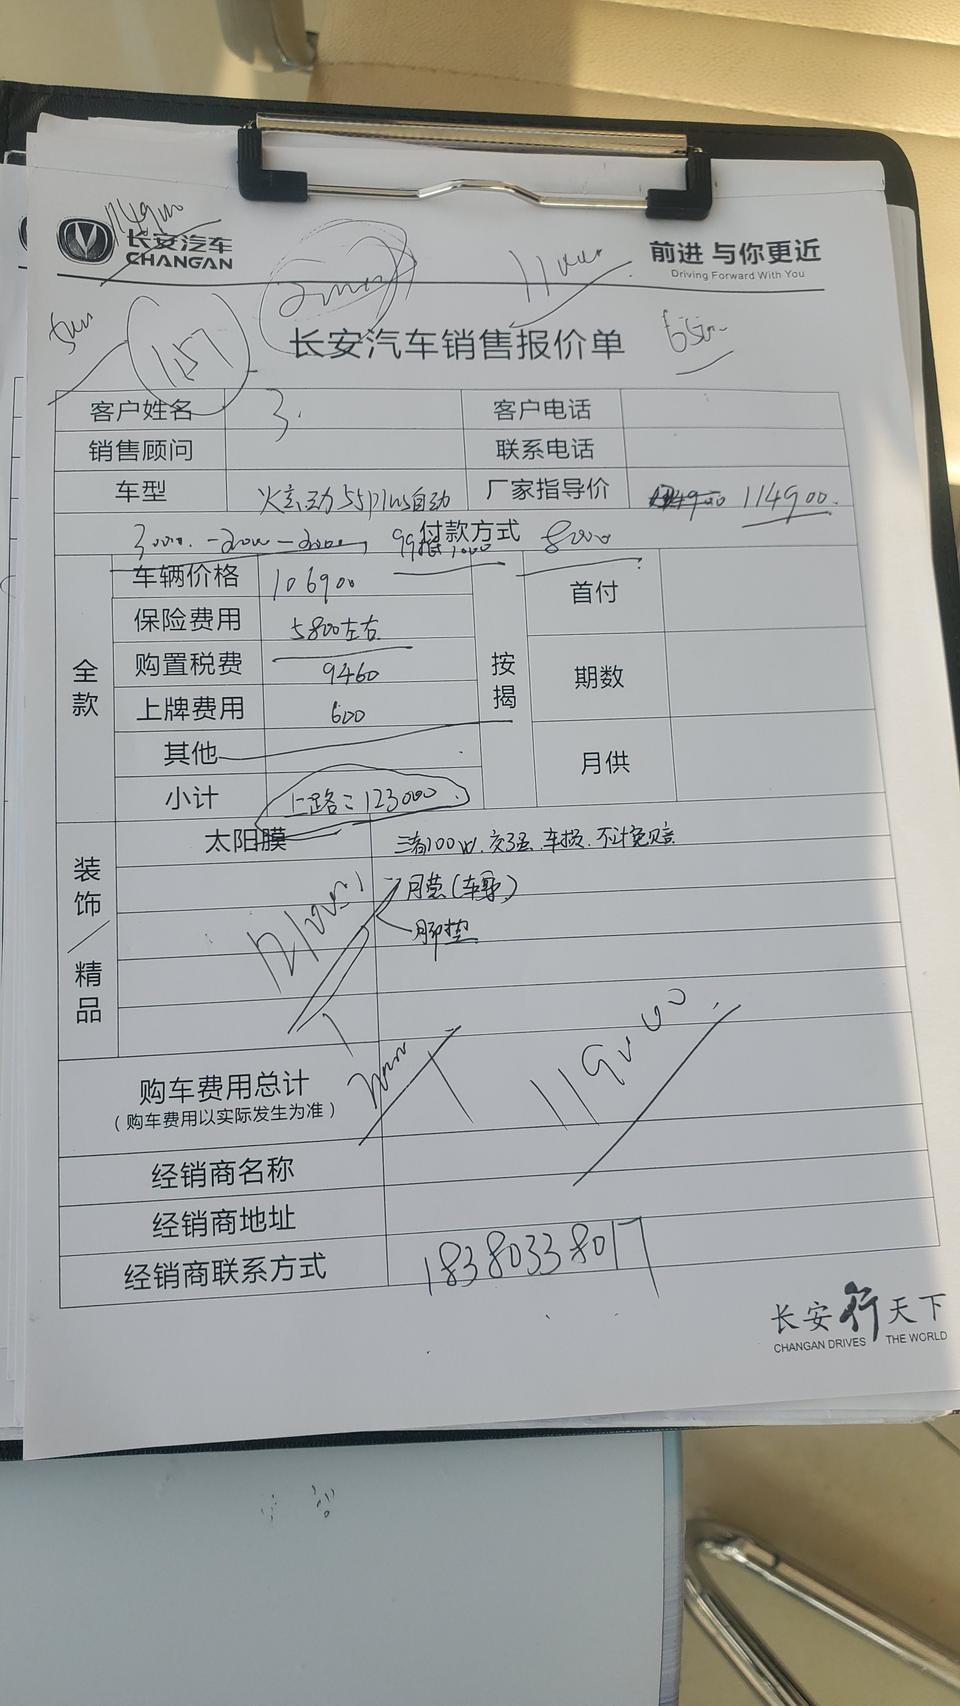 长安汽车
CHANGAN
前进 与你更近
Driving Forward With You
11000
长安汽车销售报价单
客户姓名 客户电话
销售顾问 联系电话
车型 55plus自动 厂家指导价 114900.
付款方式 8000
全款
车辆价格 106900
保险费用 5800左右
购置税费 9460
上牌费用 600
其他
小计 上路:123000
按揭
首付
期数
月供
装饰/精品
太阳膜 三者100W.交强.车损.不计免赔
脚垫
119000
购车费用总计
(购车费用以实际发生为准)
经销商名称
经销商地址
经销商联系方式 18380338017
长安行天下
CHANGAN DRIVES THE WORLD